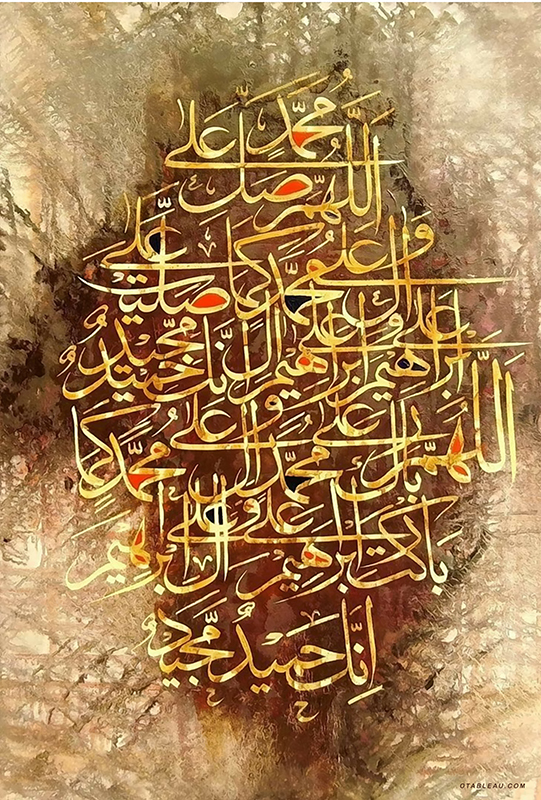 اللهم صل على محمد
وعلى آل محمد كما صليت على
ابراهيم وعلى آل ابراهيم انك حميد مجيد
اللهم بارك على محمد وعلى آل محمد كما
باركت على ابراهيم وعلى آل ابراهيم
انك حميد مجيد
OTABLEAU.COM